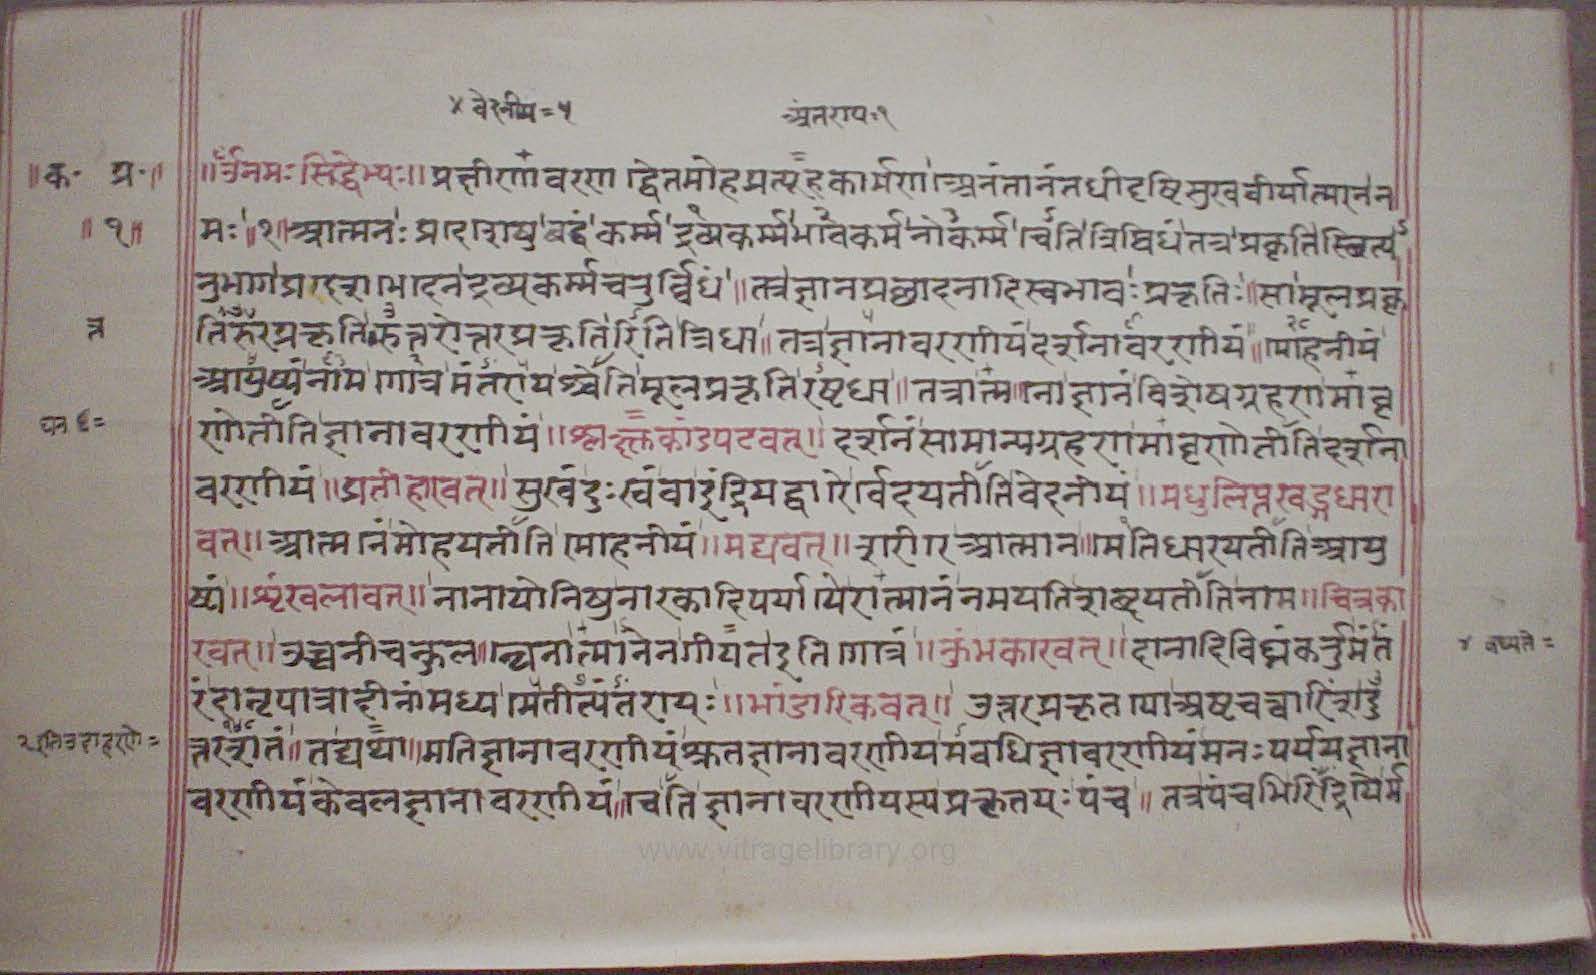 ४ वेदनीय = ५
अंतराय = १
॥ क॰ प्र॰ ॥
॥ १ ॥
॥ ॐनमः सिद्धेभ्यः ॥ प्रक्षीणावरण द्वेतमोहप्रत्यूहकार्मणे अनंतानंतधीदृष्टिसुखवीर्यात्मनेन
मः ॥ १ ॥ आत्मनः प्रदेशेषु बद्धं कर्म्म द्रव्यकर्म्म भावकर्म नोकर्म्म चेति त्रिविधं तत्र प्रकृतिस्थित्य
नुभागप्रदेशभेदेन द्रव्यकर्म्म चतुर्विधं ॥ तत्र ज्ञानप्रछादनादिस्वभावः प्रकृतिः ॥ सा मूलप्रकृ
तिरुत्तरप्रकृतिरुत्तरोत्तरप्रकृतिरिति त्रिधा ॥ तत्र ज्ञानावरणीयं दर्शनावरणीयं ॥ मोहनीयं
आयुष्यं नाम गोत्रमंतरायश्चेति मूलप्रकृतिरष्टधा ॥ तत्रात्मनो ज्ञानं विशेषग्रहणमावृ
णोतीति ज्ञानावरणीयं ॥ श्लक्ष्णकांडपटवत् ॥ दर्शनं सामान्यग्रहणमावृणोतीति दर्शना
वरणीयं ॥ प्रतीहारवत् ॥ सुखं दुःखं वा इंद्रियद्वारैर्वेदयतीति वेदनीयं ॥ मधुलिप्तखड्गधारा
वत् ॥ आत्मानं मोहयतीति मोहनीयं ॥ मद्यवत् ॥ शरीरे आत्मानमेति धारयतीति आयु
ष्यं ॥ शृंखलावत् ॥ नानायोनिषु नारकादिपर्यायैरात्मानं नमयति शब्दयतीति नाम ॥ चित्रका
रवत् ॥ उच्चनीचकुलत्वेनात्मानेन गीयत इति गोत्रं ॥ कुंभकारवत् ॥ दानादिविघ्नं कर्त्तुमंत
रं दातृपात्रादीनां मध्यमेतीत्यंतरायः ॥ भांडारिकवत् ॥ उत्तरप्रकृतयो अष्टचत्वारिंशदु
त्तरशतं ॥ तद्यथा ॥ मतिज्ञानावरणीयं श्रुतज्ञानावरणीयमवधिज्ञावरणीयं मनःपर्ययज्ञाना
वरणीयं केवलज्ञानावरणीयं चेति ज्ञानावरणीयस्य प्रकृतयः पंच ॥ तत्र पंचभिरिंद्रियैर्म
www.vitragelibrary.org